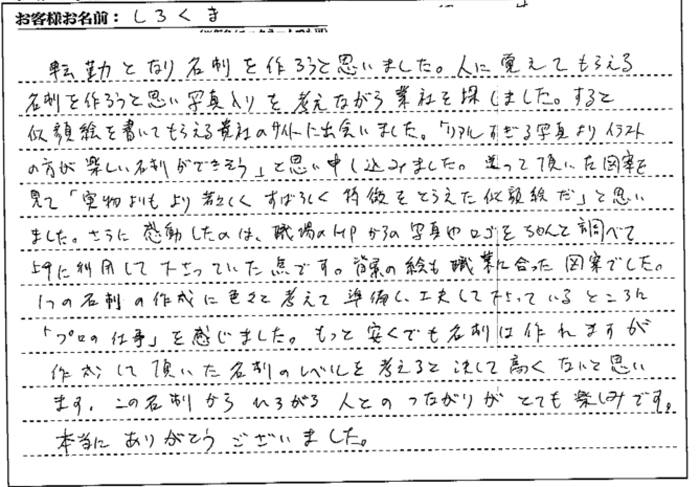 お客様お名前：しろくま
転勤となり名刺を作ろうと思いました。人に覚えてもらえる
名刺を作ろうと思い写真入りを考えながら業社を探しました。すると
似顔絵を書いてもらえる貴社のサイトに出会いました。「リアルすぎる写真よりイラスト
の方が楽しい名刺ができそう」と思い申し込みました。送って頂いた図案を
見て「実物よりもより若々しくすばらしく特徴をとらえた似顔絵だ」と思い
ました。さらに感動したのは、職場のHPからの写真やロゴをちゃんと調べて
上手に利用して下さっていた点です。背景の絵も職業に合った図案でした。
1つの名刺の作成に色々と考えて準備し、工夫して下さっているところに
「プロの仕事」を感じました。もっと安くでも名刺は作れますが
作成して頂いた名刺のレベルを考えると決して高くないと思い
ます。この名刺からひろがる人とのつながりがとても楽しみです。
本当にありがとうございました。